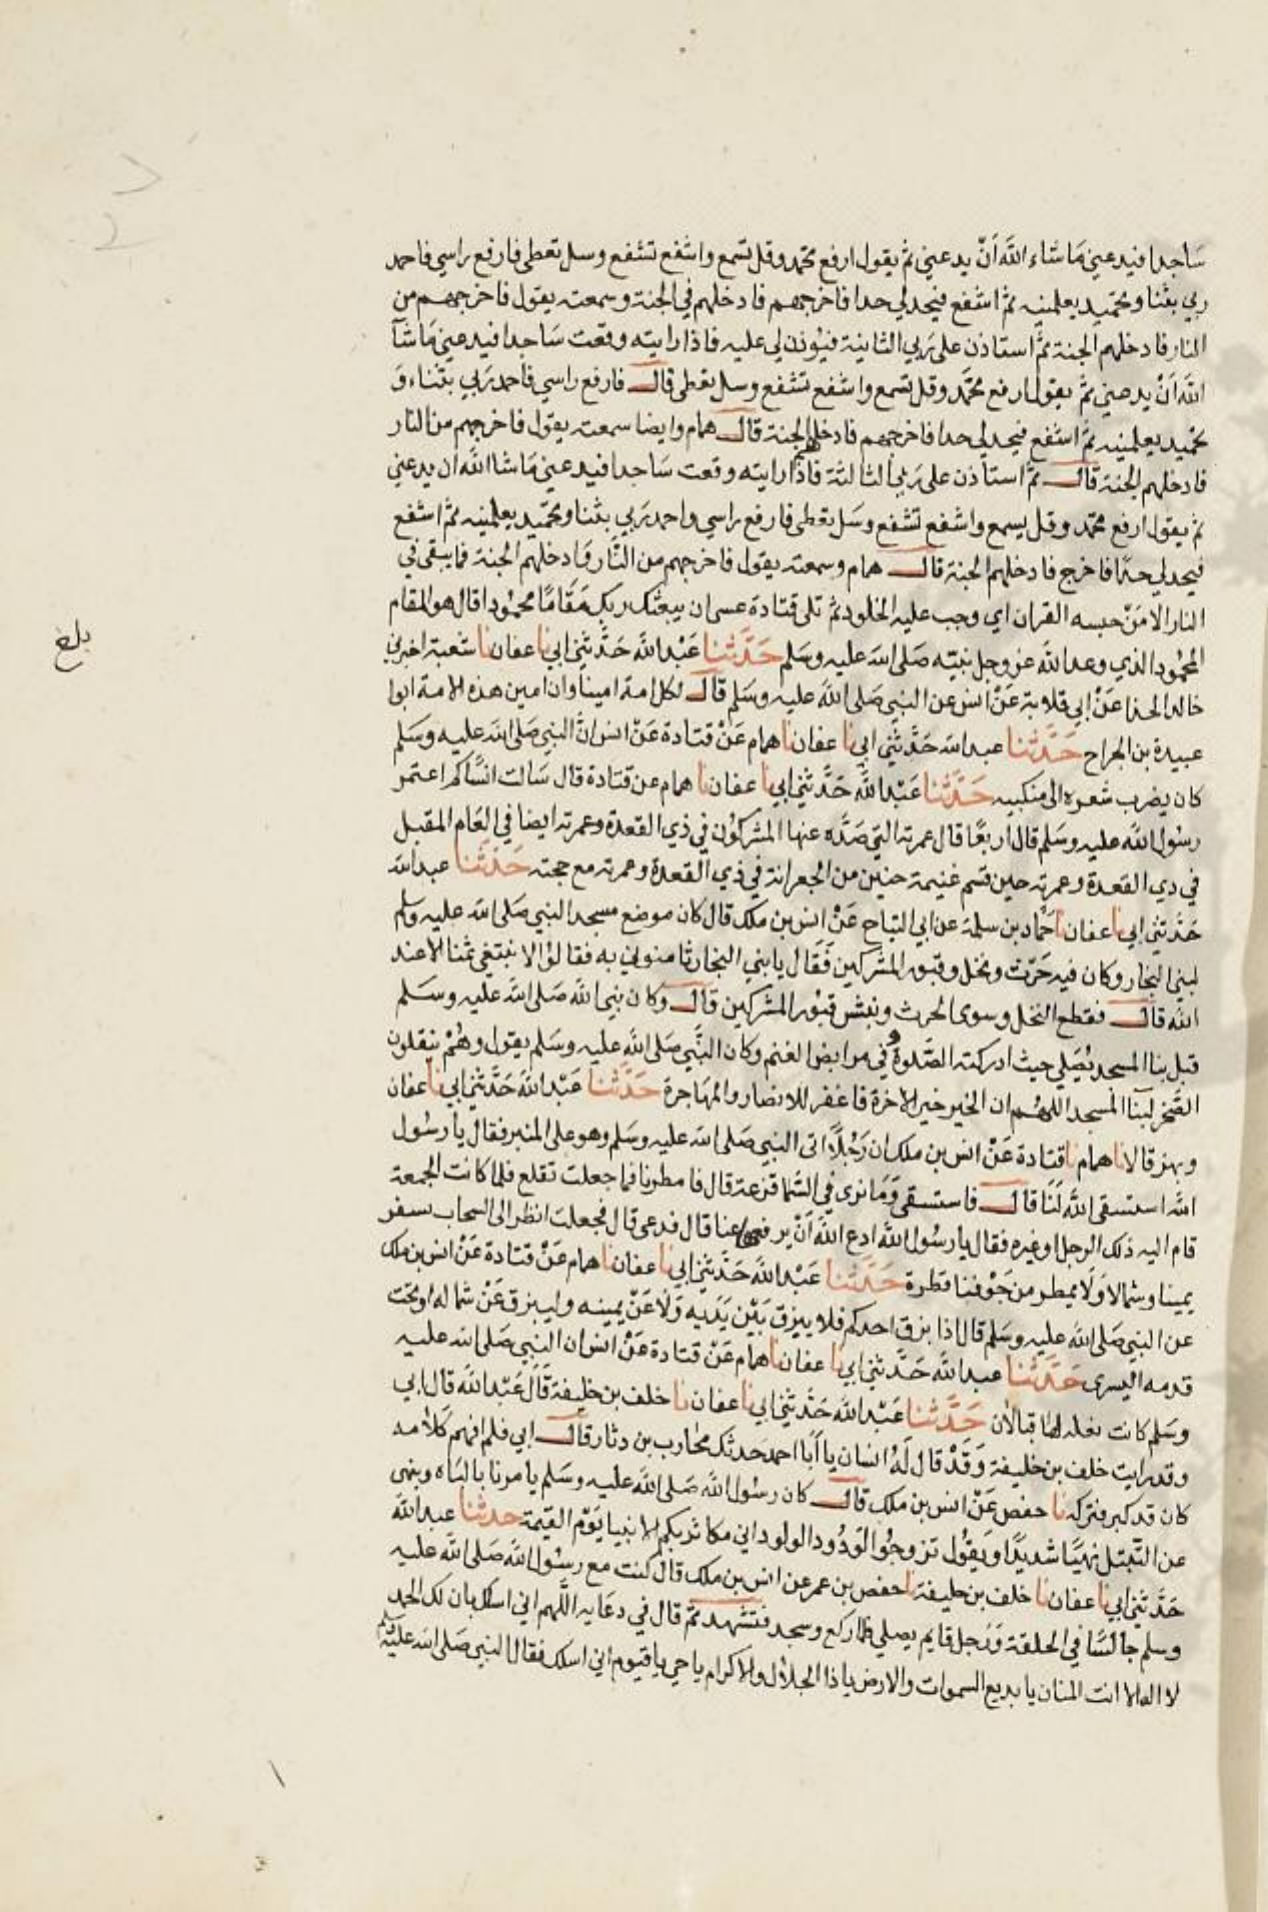 ساجدا فيدعني ما شاء الله أن يدعني ثم يقول ارفع محمد وقل تسمع واشفع تشفع وسل تعطى فارفع راسي فاحمد
ربي بثنا وتحميد يعلمنيه ثم اشفع فيحد لي حدا فاخرجهم فادخلهم في الجنة وسمعته يقول فاخرجهم من
النار فادخلهم الجنة ثم استاذن على ربي الثانية فيؤذن لي عليه فاذا رايته وقعت ساجدا فيدعني ما شآ
الله أن يدعني ثم يقول ارفع محمد وقل تسمع واشفع تشفع وسل تعطى قال فارفع راسي فاحمد ربي بثناء و
تحميد يعلمنيه ثم اشفع فيحد لي حدا فاخرجهم فادخلهم الجنة قال همام وايضا سمعته يقول فاخرجهم من النار
فادخلهم الجنة قال ثم استاذن على ربي الثالثة فاذا رايته وقعت ساجدا فيدعني ما شا الله ان يدعني
ثم يقول ارفع محمد وقل يسمع واشفع تشفع وسل تعطى فارفع راسي واحمد ربي بثنا وتحميد يعلمنيه ثم اشفع
فيحد لي حدا فاخرج فادخلهم الجنة قال همام وسمعته يقول فاخرجهم من النار وادخلهم الجنة فما يبقى في
النار الا من حبسه القران اي وجب عليه الخلود ثم تلى قتادة عسى ان يبعثك ربك مقاما محمودا قال هو المقام
المحمود الذي وعد الله عز وجل نبيه صلى الله عليه وسلم حدثنا عبد الله حدثني ابي نا عفان نا شعبة اخبرني
خالد الحذا عن ابي قلابة عن انس عن النبي صلى الله عليه وسلم قال لكل امة امينا وان امين هذه الامة ابوا
عبيدة بن الجراح حدثنا عبد الله حدثني ابي نا عفان نا همام عن قتادة عن انس ان النبي صلى الله عليه وسلم
كان يضرب شعره الى منكبيه حدثنا عبد الله حدثني ابي نا عفان نا همام عن قتادة قال سالت انسا كم اعتمر
رسول الله عليه وسلم قال اربعا قال عمرته التي صده عنها المشركون في ذي القعدة وعمرته ايضا في العام المقبل
في ذي القعدة وعمرته حين قسم غنيمة حنين من الجعرانة في ذي القعدة وعمرته مع حجته حدثنا عبد الله
حدثني ابي نا عفان نا حماد بن سلمة عن ابي التياح عن انس بن ملك قال كان موضع مسجد النبي صلى الله عليه وسلم
لبني النجار وكان فيه حرث ونخل وقبور المشركين فقال يا بني النجار ثامنوني به فقالوا لا نبتغي ثمنا الا عند
الله قال فقطع النخل وسوى الحرث ونبش قبور المشركين قال وكان نبي الله صلى الله عليه وسلم
قبل بنا المسجد يصلي حيث ادركته الصلوة وفي مرابض الغنم وكان النبي صلى الله عليه وسلم يقول وهم ينقلون
الصخر لبنا المسجد اللهم ان الخير خير الاخرة فاغفر للانصار والمهاجرة حدثنا عبد الله حدثني ابي نا عفان
وبهز قالا نا همام نا قتادة عن انس بن ملك ان رجلا اتى النبي صلى الله عليه وسلم وهو على المنبر فقال يا رسول
الله استسقى الله لنا قال فاستسقى وما نرى في السما قزعة قال فامطرنا فما جعلت تقلع فلما كانت الجمعة
قام اليه ذلك الرجل او غيره فقال يا رسول الله ادع الله أن يرفعها عنا قال فدعى قال فجعلت انظر الى السحاب يسفر
يمينا وشمالا ولا يمطر من جوفنا قطرة حدثنا عبد الله حدثني ابي نا عفان نا همام عن قتادة عن انس بن ملك
عن النبي صلى الله عليه وسلم قال اذا بزق احدكم فلا يبزق بين يديه ولا عن يمينه وليبزق عن شماله او تحت
قدمه اليسرى حدثنا عبد الله حدثني ابي نا عفان نا همام عن قتادة عن انس ان النبي صلى الله عليه
وسلم كانت نعله لها قبالان حدثنا عبد الله حدثني ابي نا عفان نا خلف بن خليفة قال عبد الله قال ابي
وقد رايت خلف بن خليفة وقد قال له انسان يا أبا احمد حدثك محارب بن دثار قال ابي فلم افهم كلامه
كان قد كبر فتركته نا حفص عن انس بن ملك قال كان رسول الله صلى الله عليه وسلم يامرنا بالباه وينهى
عن التبتل نهيا شديدا ويقول تزوجوا الودود الولود اني مكاثر بكم الانبيا يوم القيمة حدثنا عبد الله
حدثني ابي نا عفان نا خلف بن خليفة نا حفص بن عمر عن انس بن ملك قال كنت مع رسول الله صلى الله عليه
وسلم جالسا في الحلقة ورجل قايم يصلي فلما ركع وسجد فتشهد ثم قال في دعايه اللهم اني اسالك بان لك الحمد
لا اله الا انت المنان يا بديع السموات والارض يا ذا الجلال والاكرام يا حي يا قيوم اني اسلك فقال النبي صلى الله عليه وسلم
بلغ